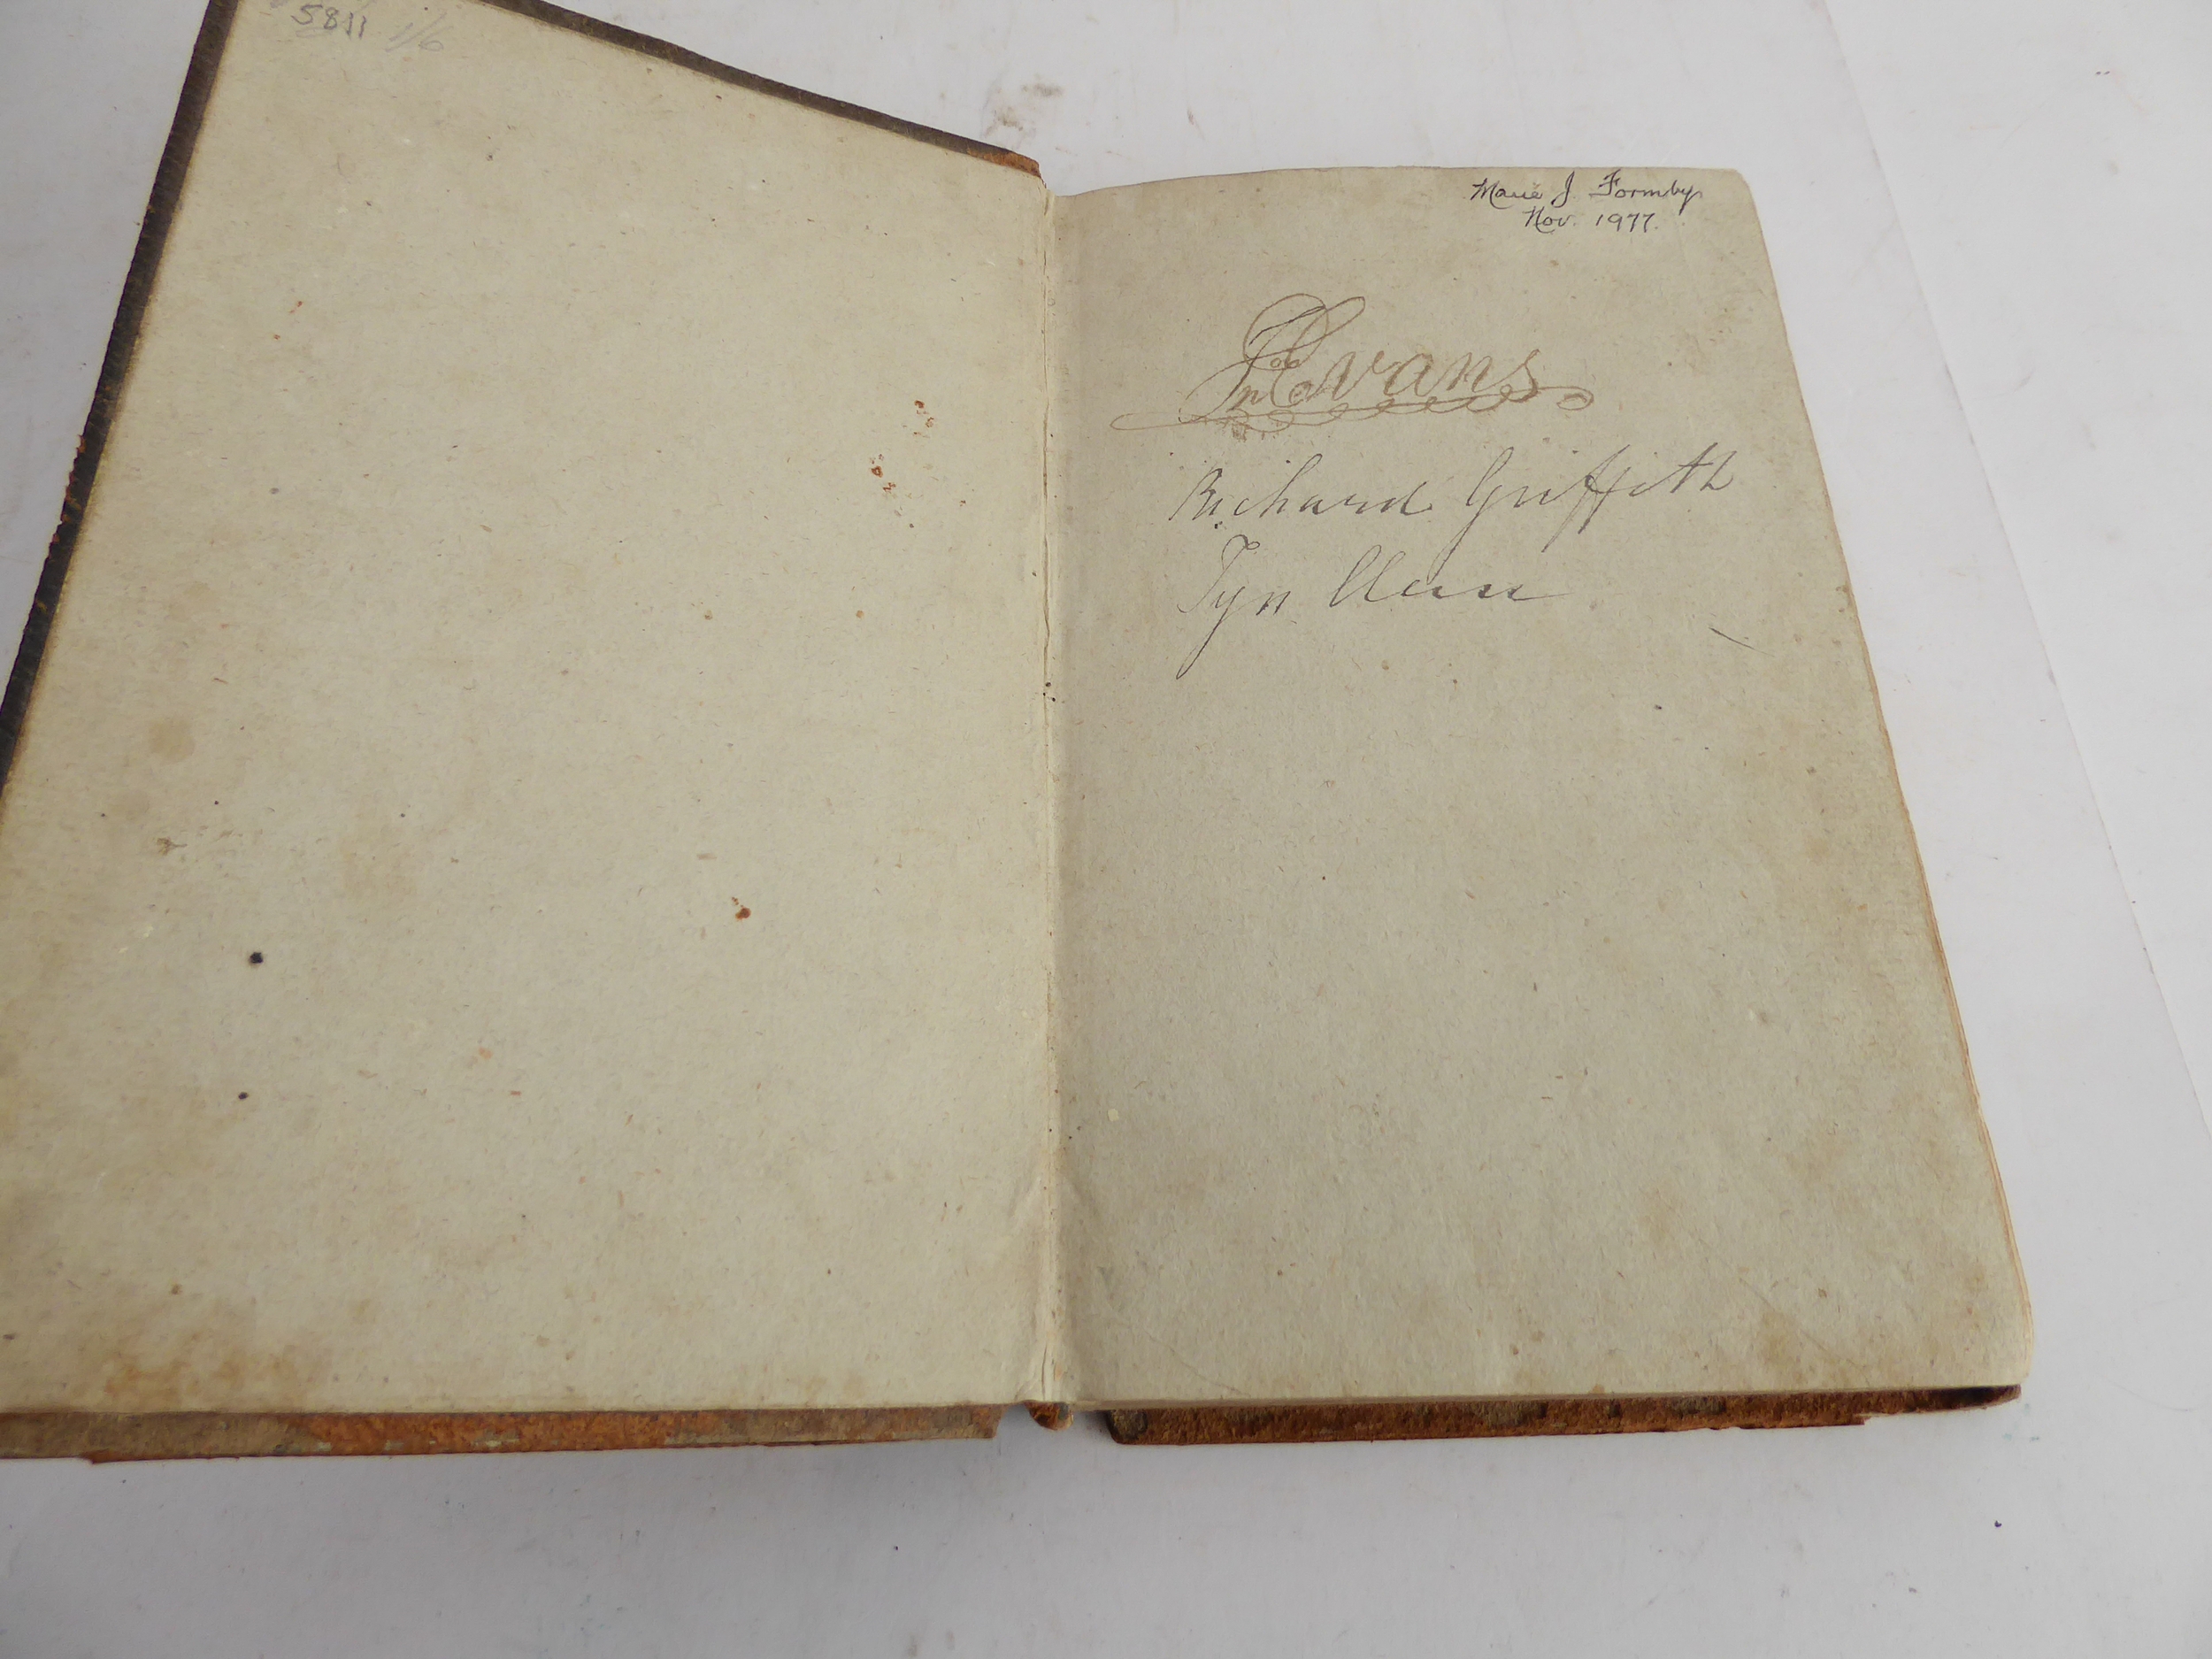 5811 1/6
Marie J. Formby
Nov. 1977.
Jno Evans
Richard Griffith
Tyn